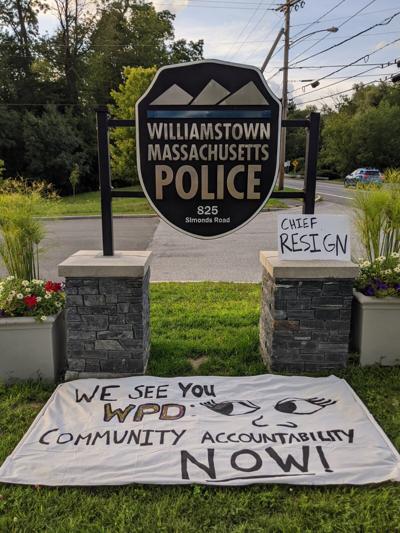 WILLIAMSTOWN
MASSACHUSETTS
POLICE
825
Simonds Road
CHIEF
RESIGN
WE SEE YOU
WPD
COMMUNITY ACCOUNTABILITY
NOW!